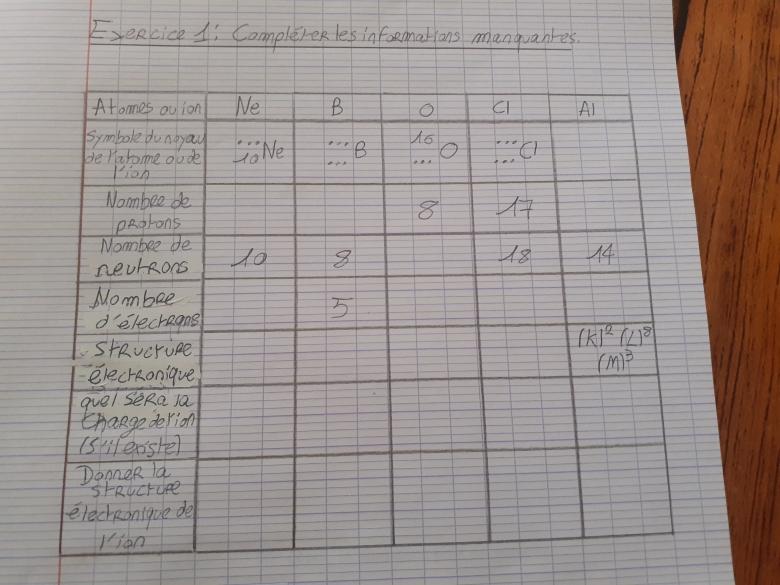 Exercice 1: Compléter les informations manquantes.
Atomes ou ion Ne B O Cl Al
Symbole du noyau
de l'atome ou de
l'ion
... 10 Ne ... ... B 16 ... O ... ... Cl
Nombre de
protons
8 17
Nombre de
neutrons
10 8 18 14
Nombre
d'électrons
5
Structure
électronique
(K)² (L)⁸
(M)³
quel sera la
charge de l'ion
(s'il existe)
Donner la
structure
électronique de
l'ion